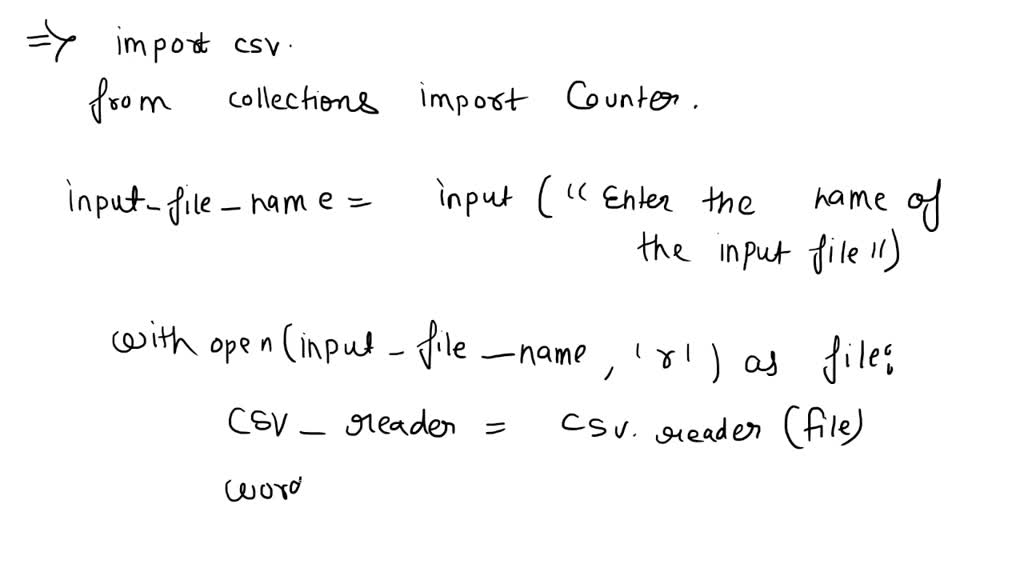 ⇒ import csv.
from collections import Counter.
input_file_name = input ("Enter the name of
the input file")
with open(input_file_name, 'r') as file:
csv_reader = csv.reader (file)
word